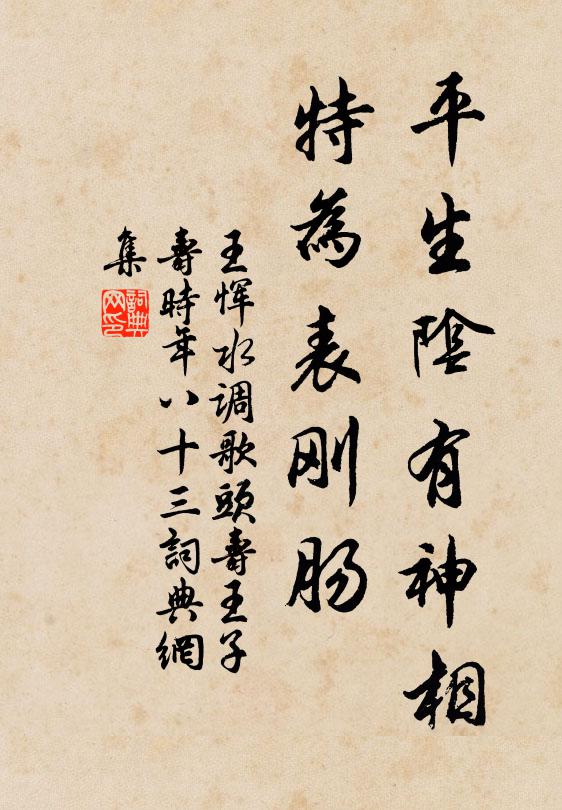 平生陰有神相
特為表刚肠
王恽水调歌頭壽王子
壽時年八十三詞典網
集
詞典网印